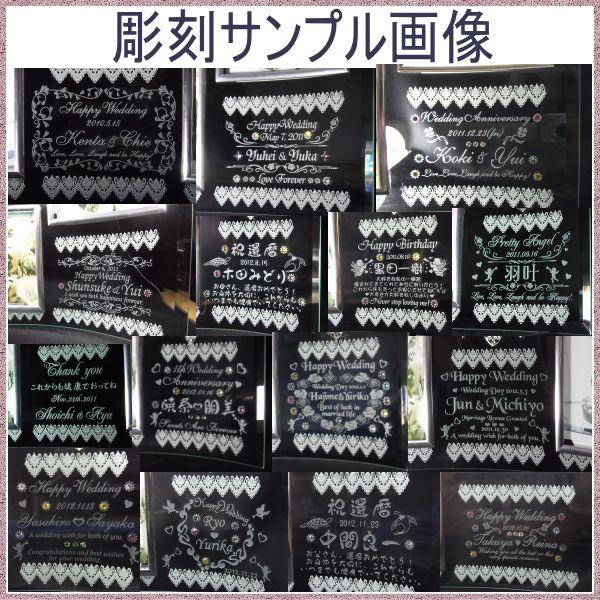 彫刻サンプル画像
Happy Wedding
2010.5.15
Kenta & Chie
Love, Love, Laugh and be Happy!
Happy Wedding
May 7, 2011
Yuhei & Yuka
Love Forever
Wedding Anniversary
2011.12.23(fri)
Koki & Yui
Love, Love, Laugh, and be Happy!
October 6, 2011
Happy Wedding
Shunsuke & Yui
I wish you both happiness forever.
祝還暦
2012.8.15
木田みどり
お母さん、還暦おめでとう!
Happy Birthday
2011.08.10
黒田一樹
Never stop loving me!
Pretty Angel
2011.09.16
羽叶
Love, Love, Laugh and be Happy!
Thank you
これからも健康でおってね
Nov.23th.2011
Shoichi & Aya
1th Wedding
Anniversary
2012.01.16
Sweets Are Forever
Happy Wedding
Wedding Day
Hajime & Yuriko
Best of luck in
married life
Happy Wedding
Wedding Day 2012.3.3
Jun & Michiyo
Marriage License Granted
2011.12.30
A wedding wish for both of you.
Happy Wedding
2012.11.13
Yasuhiro Sayaka
A wedding wish for both of you.
Congratulations and best wishes
for your wedding.
Happy Wedding
Ryo
Yurika
祝還暦
2012.11.23
お父さん、還暦おめでとう
Happy Wedding
Takuya Reina
Wishing you all the best on this
very special occasion.